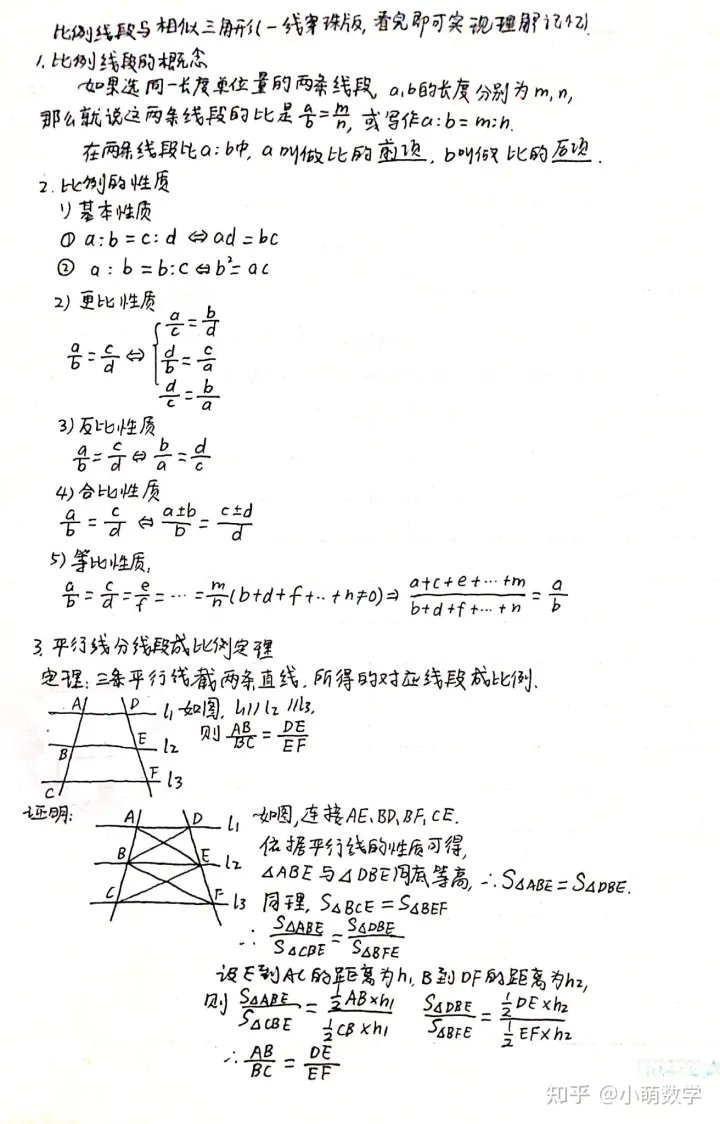 比例线段与相似三角形(一线穿珠版,看完即可实现理解记忆)
1.比例线段的概念
如果选同一长度单位量的两条线段 a,b的长度分别为m,n,
那么就说这两条线段的比是a/b=m/n,或写作a:b=m:n.
在两条线段比a:b中,a叫做比的前项,b叫做比的后项.
2.比例的性质
1)基本性质
① a:b=c:d⇔ad=bc
② a:b=b:c⇔b²=ac
2)更比性质
a/b=c/d⇔{a/c=b/d
d/b=c/a
d/c=b/a
3)反比性质
a/b=c/d⇔b/a=d/c
4)合比性质
a/b=c/d⇔(a±b)/b=(c±d)/d
5)等比性质,
a/b=c/d=e/f=…=m/n(b+d+f+…+n≠0)⇒(a+c+e+…+m)/(b+d+f+…+n)=a/b
3.平行线分线段成比例定理
定理:三条平行线截两条直线.所得的对应线段成比例.
A D l1 如图,l1//l2//l3,
B E l2 则AB/BC=DE/EF
C F l3
证明:
A D l1 如图,连接AE、BD、BF、CE.
依据平行线的性质可得,
B E l2 △ABE与△DBE同底等高,∴S△ABE=S△DBE.
C F l3 同理,S△BCE=S△BEF
∴S△ABE/S△CBE=S△DBE/S△BFE
设E到AC的距离为h1,B到DF的距离为h2,
则S△ABE/S△CBE=(1/2AB×h1)/(1/2CB×h1) S△DBE/S△BFE=(1/2DE×h2)/(1/2EF×h2)
∴AB/BC=DE/EF
知乎 @小萌数学